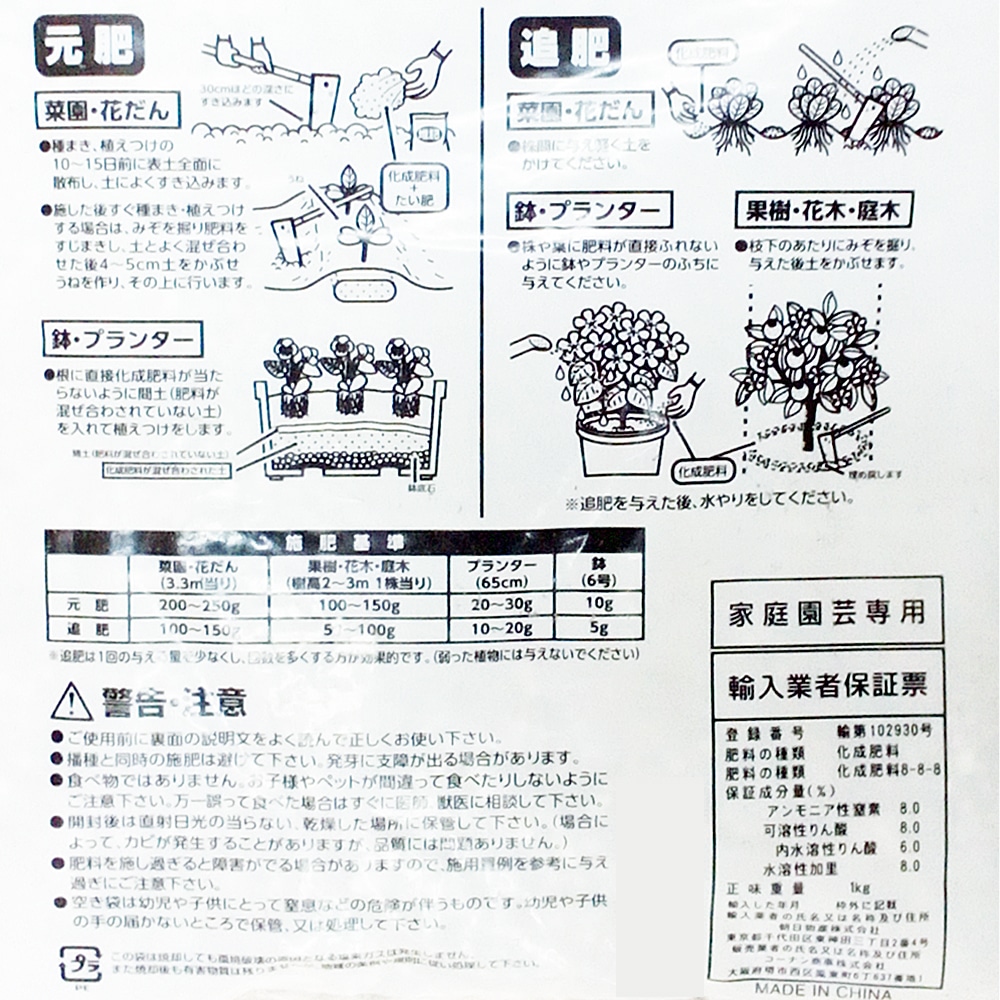 元肥
菜園・花だん
30cmほどの深さに
すき込みます
●種まき、植えつけの
10～15日前に表土全面に
散布し、土によくすき込みます。
化成肥料
+
たい肥
うね
●施した後すぐ種まき・植えつけ
する場合は、みぞを掘り肥料を
すじまきし、土とよく混ぜ合わ
せた後4～5cm土をかぶせ
うねを作り、その上に行います。
鉢・プランター
●根に直接化成肥料が当た
らないように間土(肥料が
混ぜ合わされていない土)
を入れて植えつけをします。
間土(肥料が混ぜ合わされていない土)
化成肥料が混ぜ合わされた土
鉢底石
追肥
化成肥料
菜園・花だん
●株間に与え軽く土を
かけてください。
鉢・プランター
●株や葉に肥料が直接ふれない
ように鉢やプランターのふちに
与えてください。
果樹・花木・庭木
●枝下のあたりにみぞを掘り、
与えた後土をかぶせます。
化成肥料
埋め戻します
※追肥を与えた後、水やりをしてください。
施肥基準
菜園・花だん (3.3㎡当り) 果樹・花木・庭木 (樹高2～3m 1株当り) プランター (65cm) 鉢 (6号)
元肥 200～250g 100～150g 20～30g 10g
追肥 100～150g 5 ～100g 10～20g 5g
※追肥は1回の与える量を少なくし、回数を多くする方が効果的です。(弱った植物には与えないでください)
⚠警告・注意
●ご使用前に裏面の説明文をよく読んで正しくお使い下さい。
●播種と同時の施肥は避けて下さい。発芽に支障が出る場合があります。
●食べ物ではありません。お子様やペットが間違って食べたりしないように
ご注意下さい。万一誤って食べた場合はすぐに医師、獣医に相談して下さい。
●開封後は直射日光の当らない、乾燥した場所に保管して下さい。(場合に
よって、カビが発生することがありますが、品質には問題ありません。)
●肥料を施し過ぎると障害がでる場合がありますので、施用量例を参考に与え
過ぎにご注意下さい。
●空き袋は幼児や子供にとって窒息などの危険が伴うものです。幼児や子供
の手の届かないところで保管、又は処理して下さい。
プラ
PE
この袋は焼却しても環境破壊の原因となる塩素ガスは発生しません。
また焼却後も有害物質は残りません。
家庭園芸専用
輸入業者保証票
登録番号 輸第102930号
肥料の種類 化成肥料
肥料の種類 化成肥料8-8-8
保証成分量(%)
アンモニア性窒素 8.0
可溶性りん酸 8.0
内水溶性りん酸 6.0
水溶性加里 8.0
正味重量 1kg
輸入した年月 枠外に記載
輸入業者の氏名又は名称及び住所
朝日物産株式会社
東京都千代田区東神田三丁目2番4号
販売業者の氏名又は名称及び住所
コーナン商事株式会社
大阪府堺市西区鳳東町6丁637番地1
MADE IN CHINA